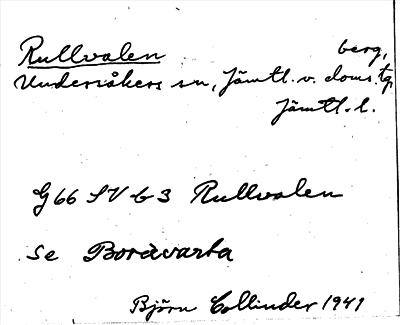 Rullvalen berg,
Undersåkers sn, Jämtl. v. doms. tg,
Jämtl. l.
G 66 SV b 3 Rullvalen
Se Boràvarta
Björn Collinder 1941